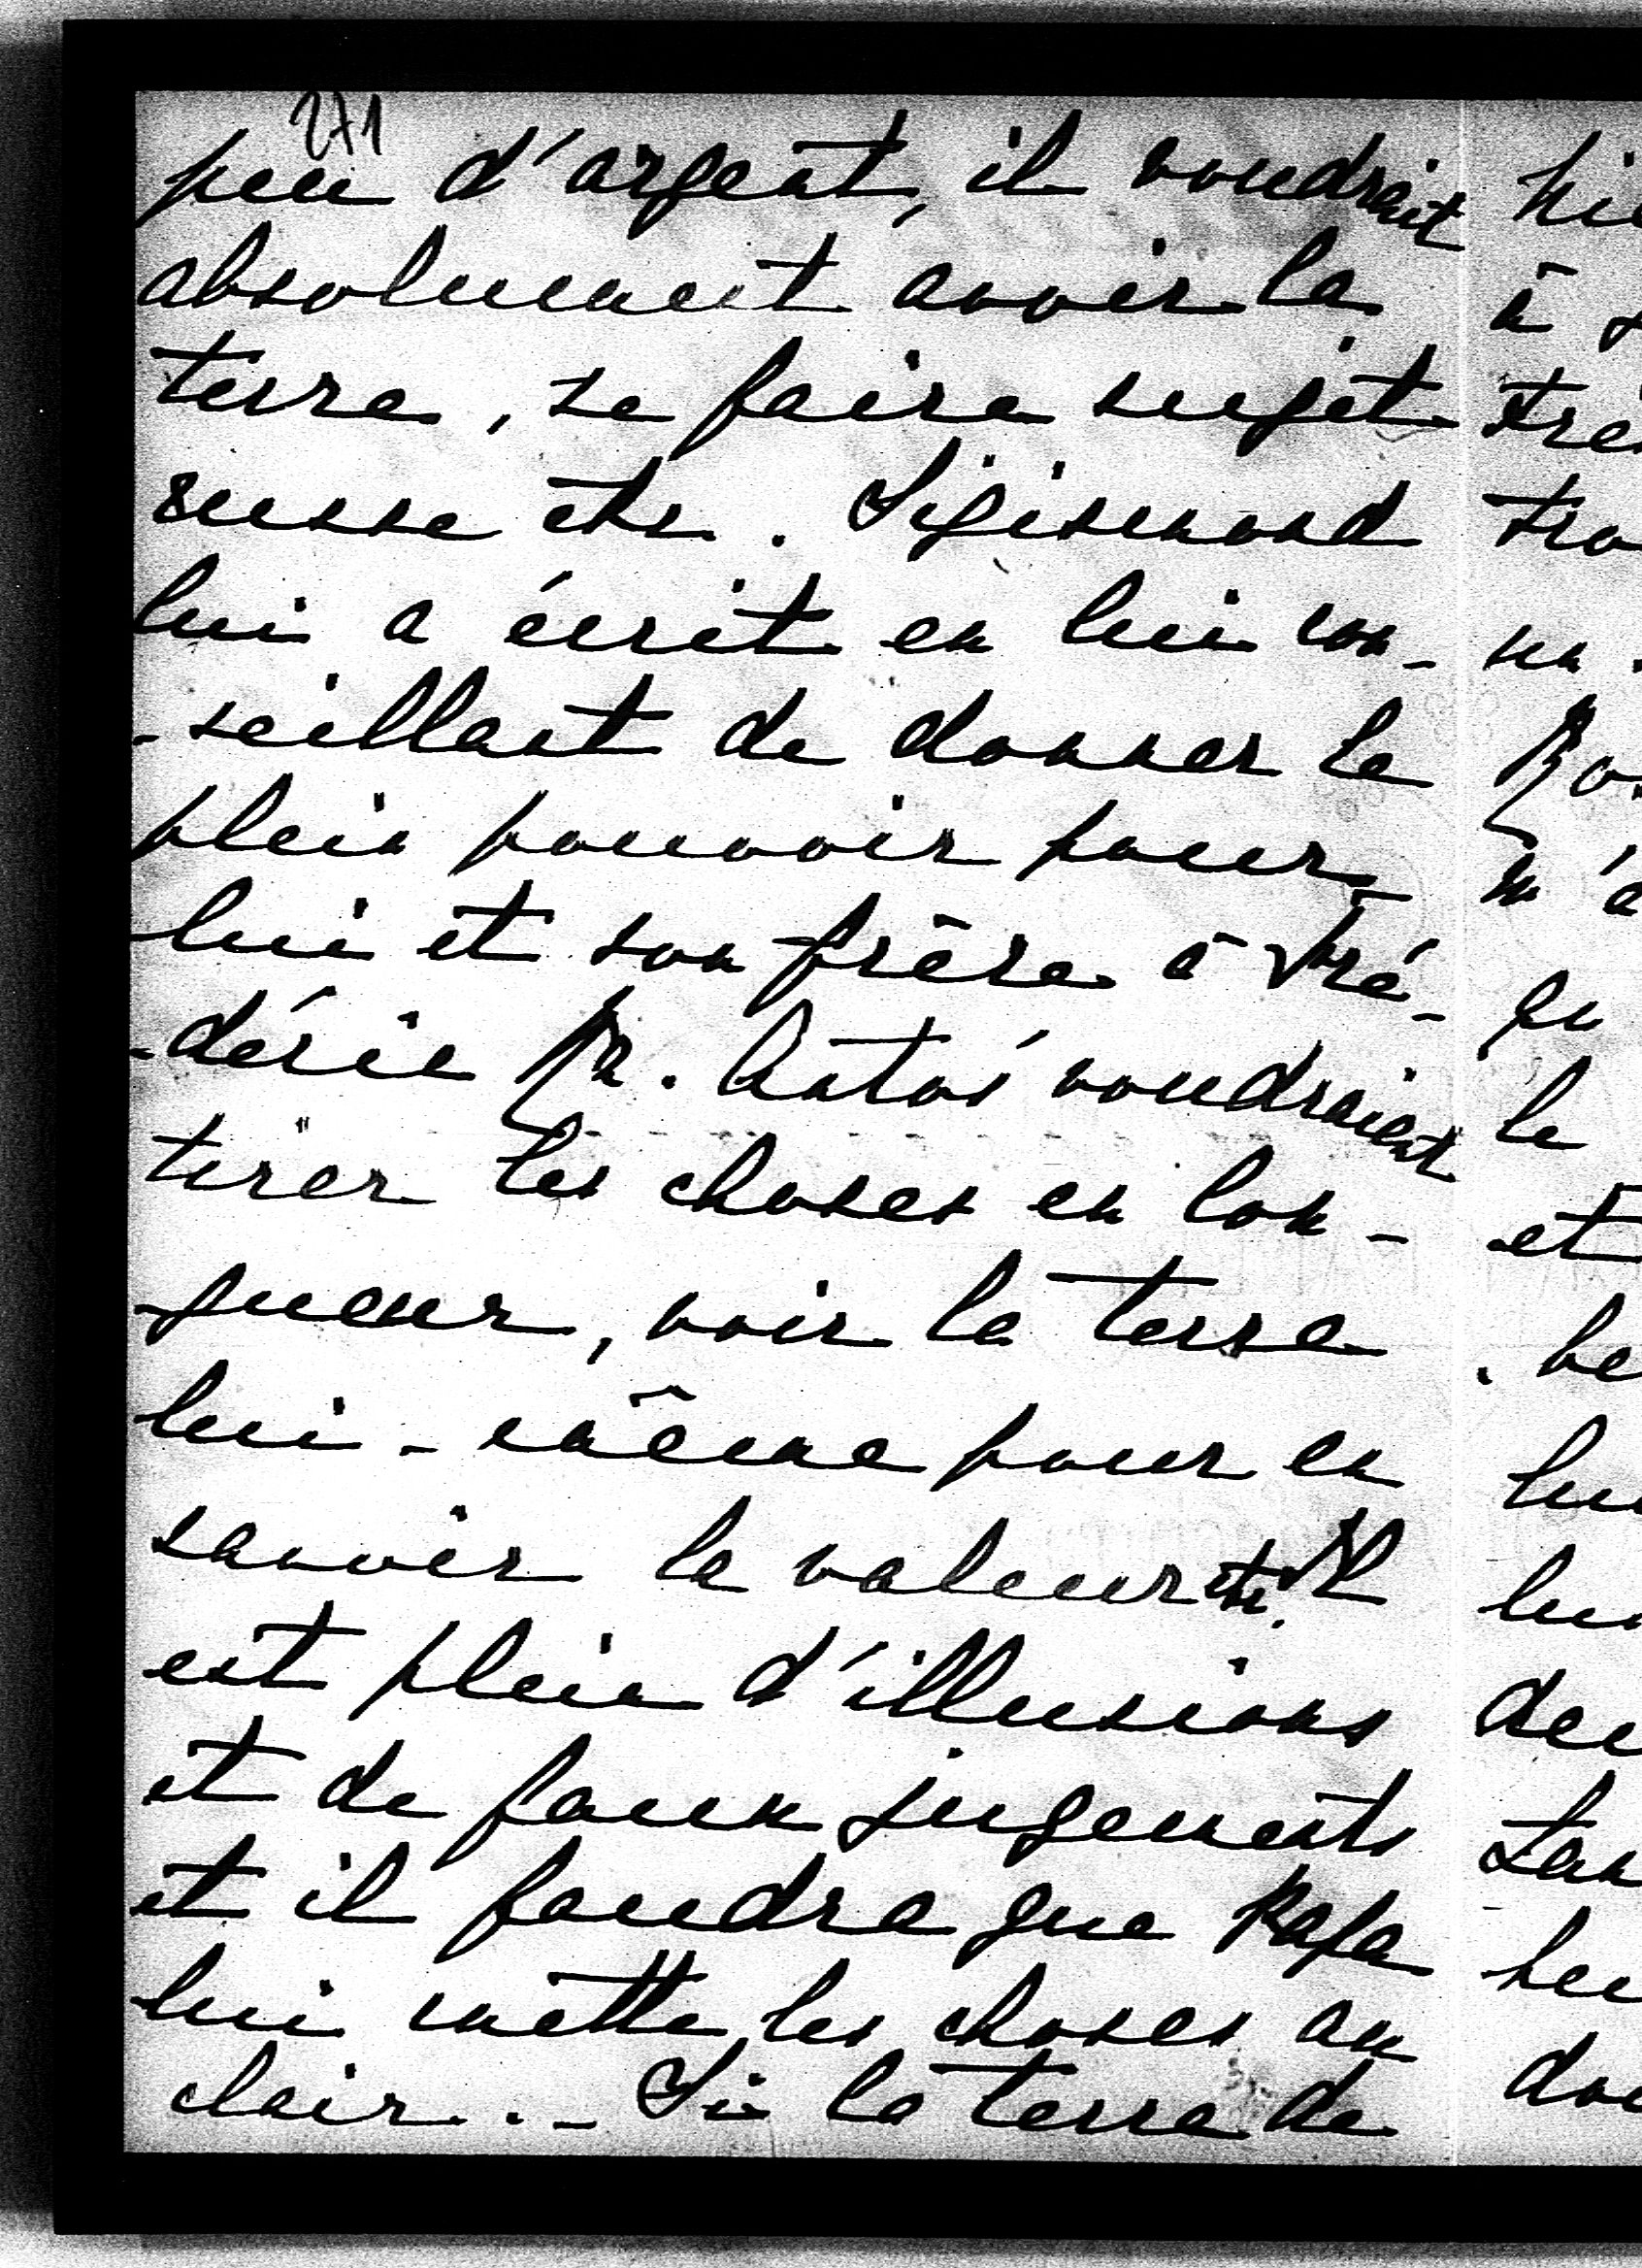 271
peu d'argent, il voudrait
absolument avoir la
terre, se faire sujet
russe etc. Sigismond
lui a écrit en lui con-
-seillant de donner le
plein pouvoir pour
lui et son frère à Fré-
-déric R. Antos voudraient
tirer les choses en lon-
-gueur, voir la terre
lui-même pour en
savoir la valeur etc. Il
est plein d'illusions
et de faux jugements
et il faudra que Papa
lui mette les choses au
clair. - Si la terre de
à
le
et